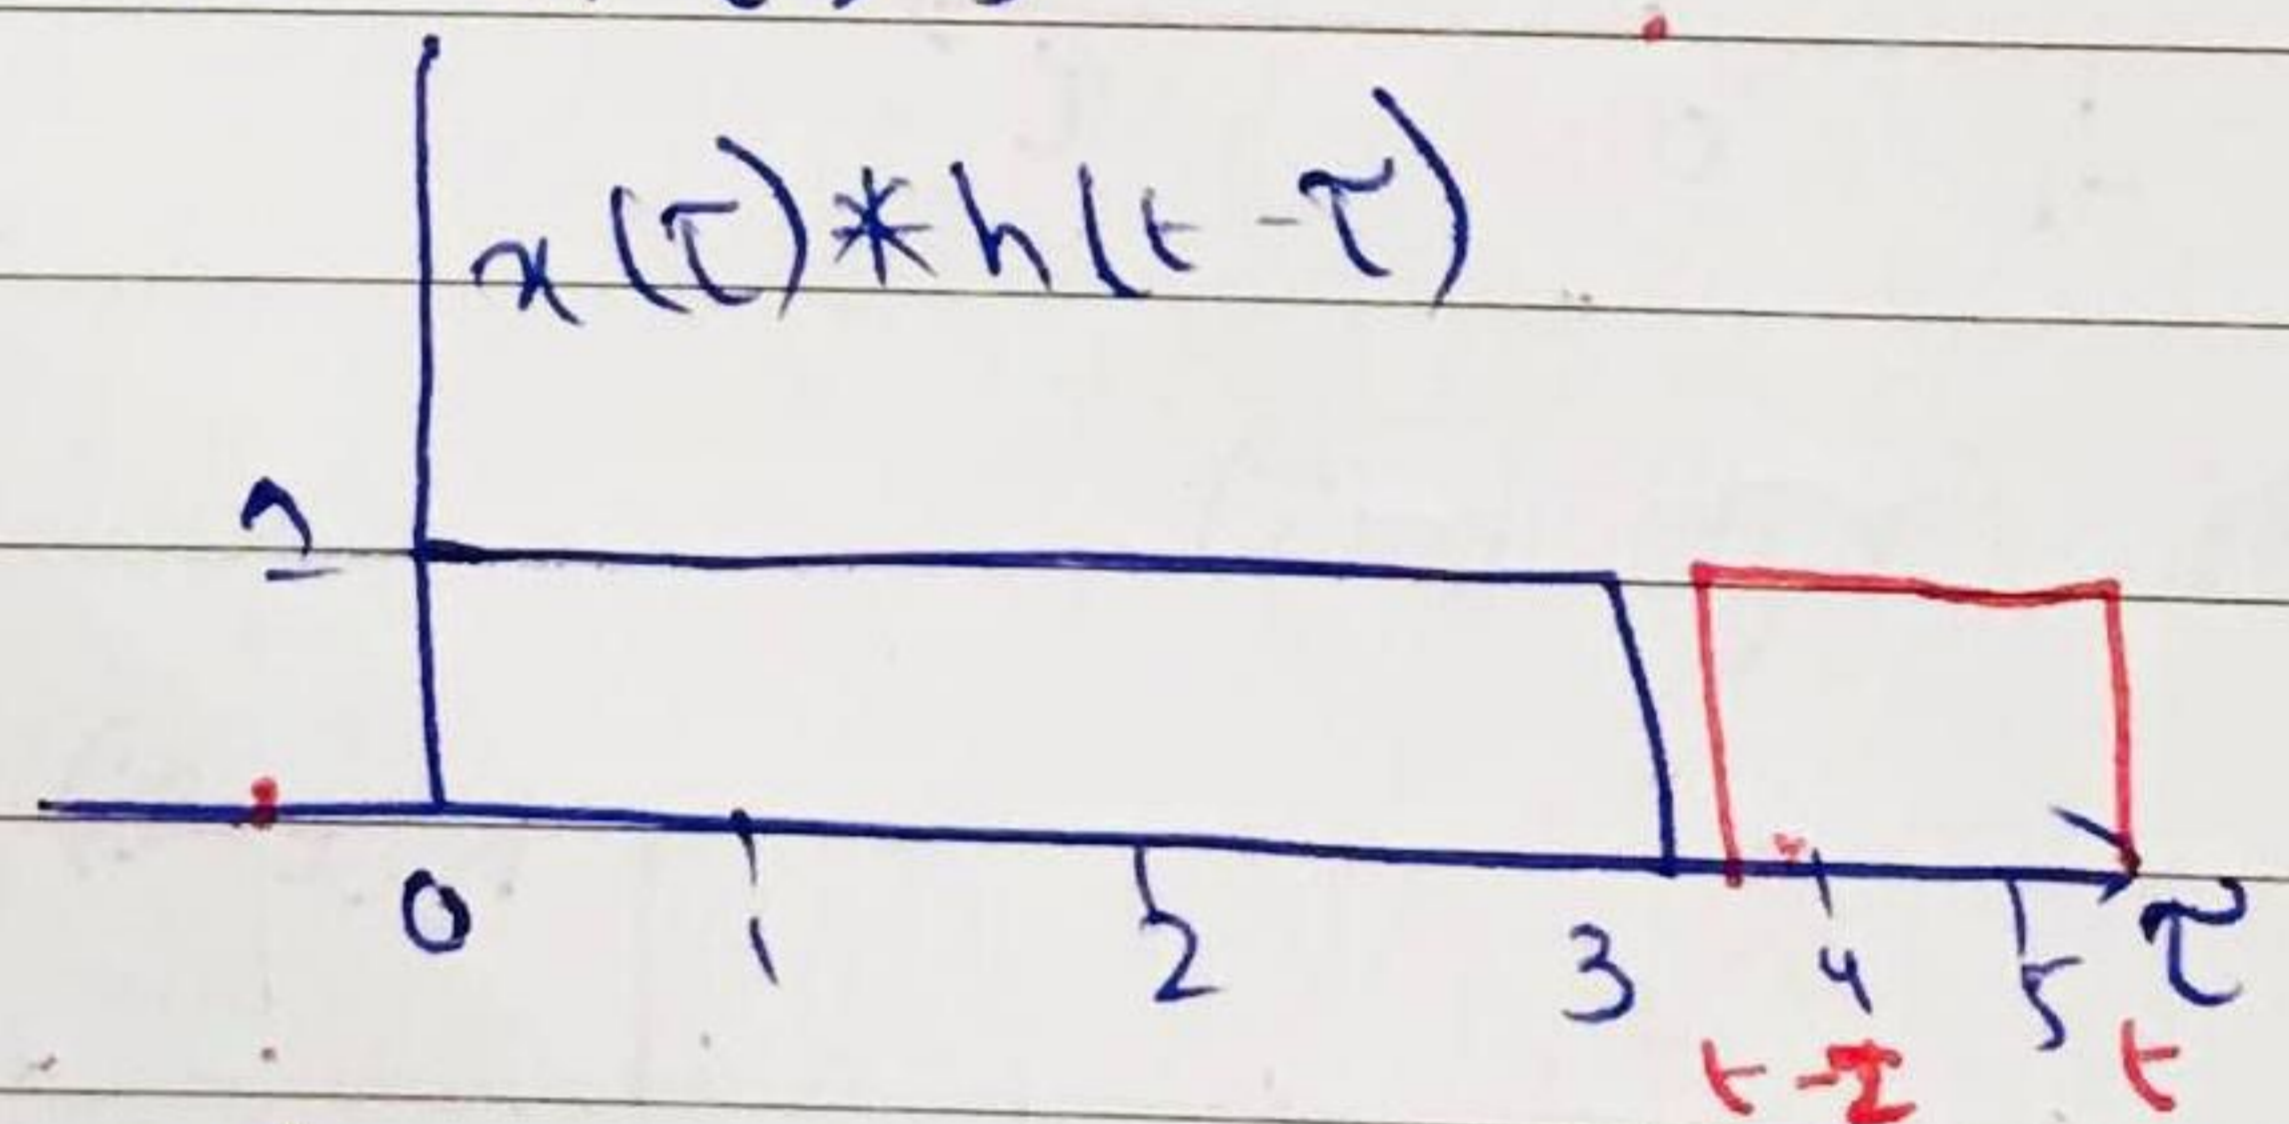 x(τ)*h(t-τ)
1
0 1 2 3 4 5 τ
t-2 t